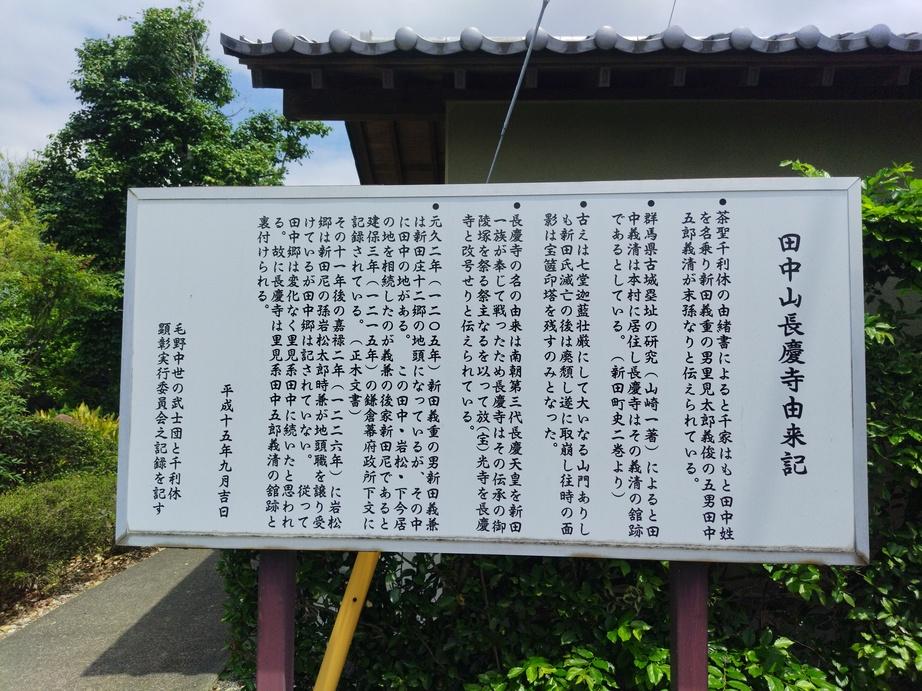 田中山長慶寺由来記
●茶聖千利休の由緒書によると千家はもと田中姓
を名乗り新田義重の男里見太郎義俊の五男田中
五郎義清が末孫なりと伝えられている。
●群馬県古城塁址の研究(山崎一著)によると田
中義清は本村に居住し長慶寺はその義清の舘跡
であるとしている。(新田町史二巻より)
●古えは七堂迦藍壮厳にして大いなる山門ありし
も新田氏滅亡の後は廃頽し遂に取崩し往時の面
影は宝篋印塔を残すのみとなった。
●長慶寺の名の由来は南朝第三代長慶天皇を新田
一族が奉じて戦ったため長慶寺はその伝承の御
陵塚を祭る祭主なるを以って放(宝)光寺を長慶
寺と改号せりと伝えられている。
●元久二年(一二〇五年)新田義重の男新田義兼
は新田庄十二郷の地頭になっているが、その中
に田中の地がある。この田中・岩松・下今居
の地を相続したのが義兼の後家新田尼であると
建保三年(一二一五年)の鎌倉幕府政所下文に
記録されている。(正木文書)
その十一年後の嘉禄二年(一二二六年)に岩松
郷は新田尼の孫岩松太郎時兼が地頭職を譲り受
けているが田中郷は記されていない。従って
田中郷は変化なく里見系田中に続いたと思われ
る。故に長慶寺は里見系田中五郎義清の舘跡と
裏付けられる。
平成十五年九月吉日
毛野中世の武士団と千利休
顕彰実行委員会之記録を記す